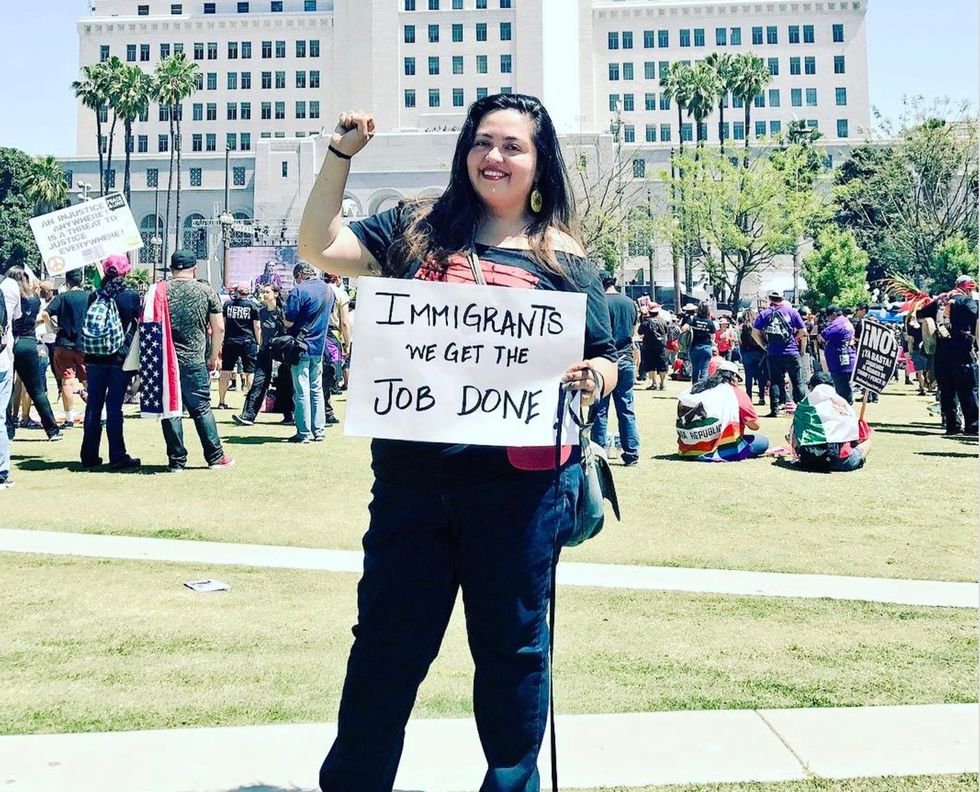 AN INJUSTICE
ANYWHERE
IS A THREAT TO
JUSTICE
EVERYWHERE!
IMMIGRANTS
WE GET THE
JOB DONE
¡NO!
¡YA BASTA!
REPUBLIC